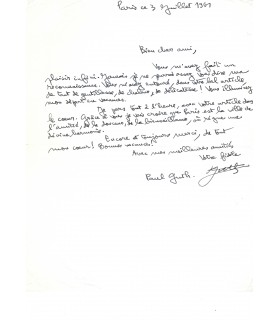 Paris ce 3 Juillet 1967
Bien cher ami,
Vous m'avez fait un
plaisir infini. Comment je ne pourrai assez vous dire ma
reconnaissance. Vous m'avez enchanté, dans votre bel article
de tant de gentillesse, de chaleur, de délicatesse ! Vous illuminez
mon départ en vacances.
Je pars tout à l'heure, avec votre article dans
le cœur. Grâce à vous je vais croire que Paris est la ville de
l'amitié, de la douceur, de la bienveillance, où règne une
divine harmonie.
Encore et toujours merci, de tout
mon cœur ! Bonnes vacances !
Avec mes meilleures amitiés
Votre fidèle
Paul Guth